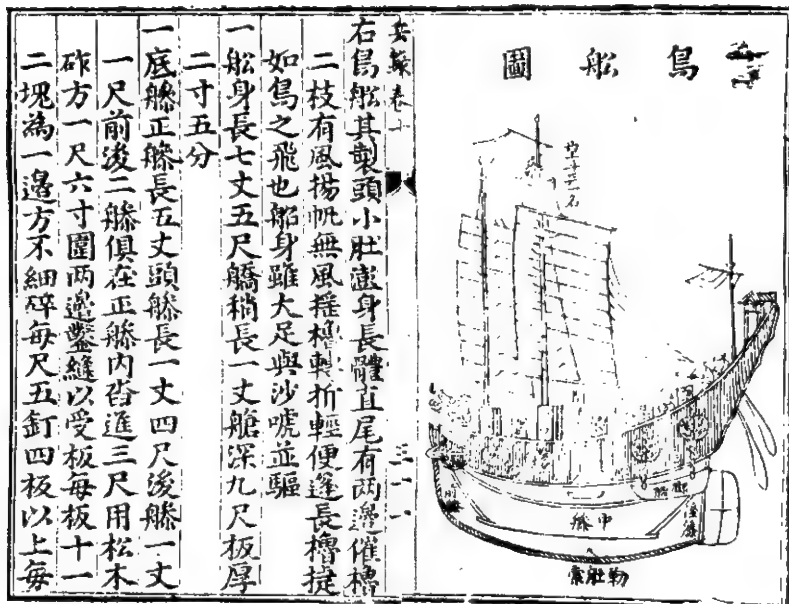 鳥船圖
中䑸
勒肚索
兵錄卷十
右鳥船其製頭小肚澎身長體直尾有两邊催櫓
二枝有風揚帆無風摇櫓轉折輕便篷長櫓捷
如鳥之飛也船身雖大足與沙唬並驅
一船身長七丈五尺艣稍長一丈艙深九尺板厚
二寸五分
一底䑸正䑸長五丈頭䑸長一丈四尺後䑸一丈
一尺前後二䑸俱在正䑸内沓進三尺用松木
砟方一尺六寸圍两邊鑿縫以受板每板十一
二塊為一邊方不細碎每尺五釘四板以上每